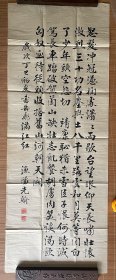 怒髮衝冠憑欄處瀟瀟雨歇抬望眼仰天長嘯壯懷
激烈三十功名塵與土八千里路雲和月莫等閒白
了少年頭空悲切靖康恥猶未雪臣子恨何時滅
駕長車踏破賀蘭山缺壯志飢餐胡虜肉笑談渴飲
匈奴血待從頭收拾舊山河朝天闕
岳飛滿江紅